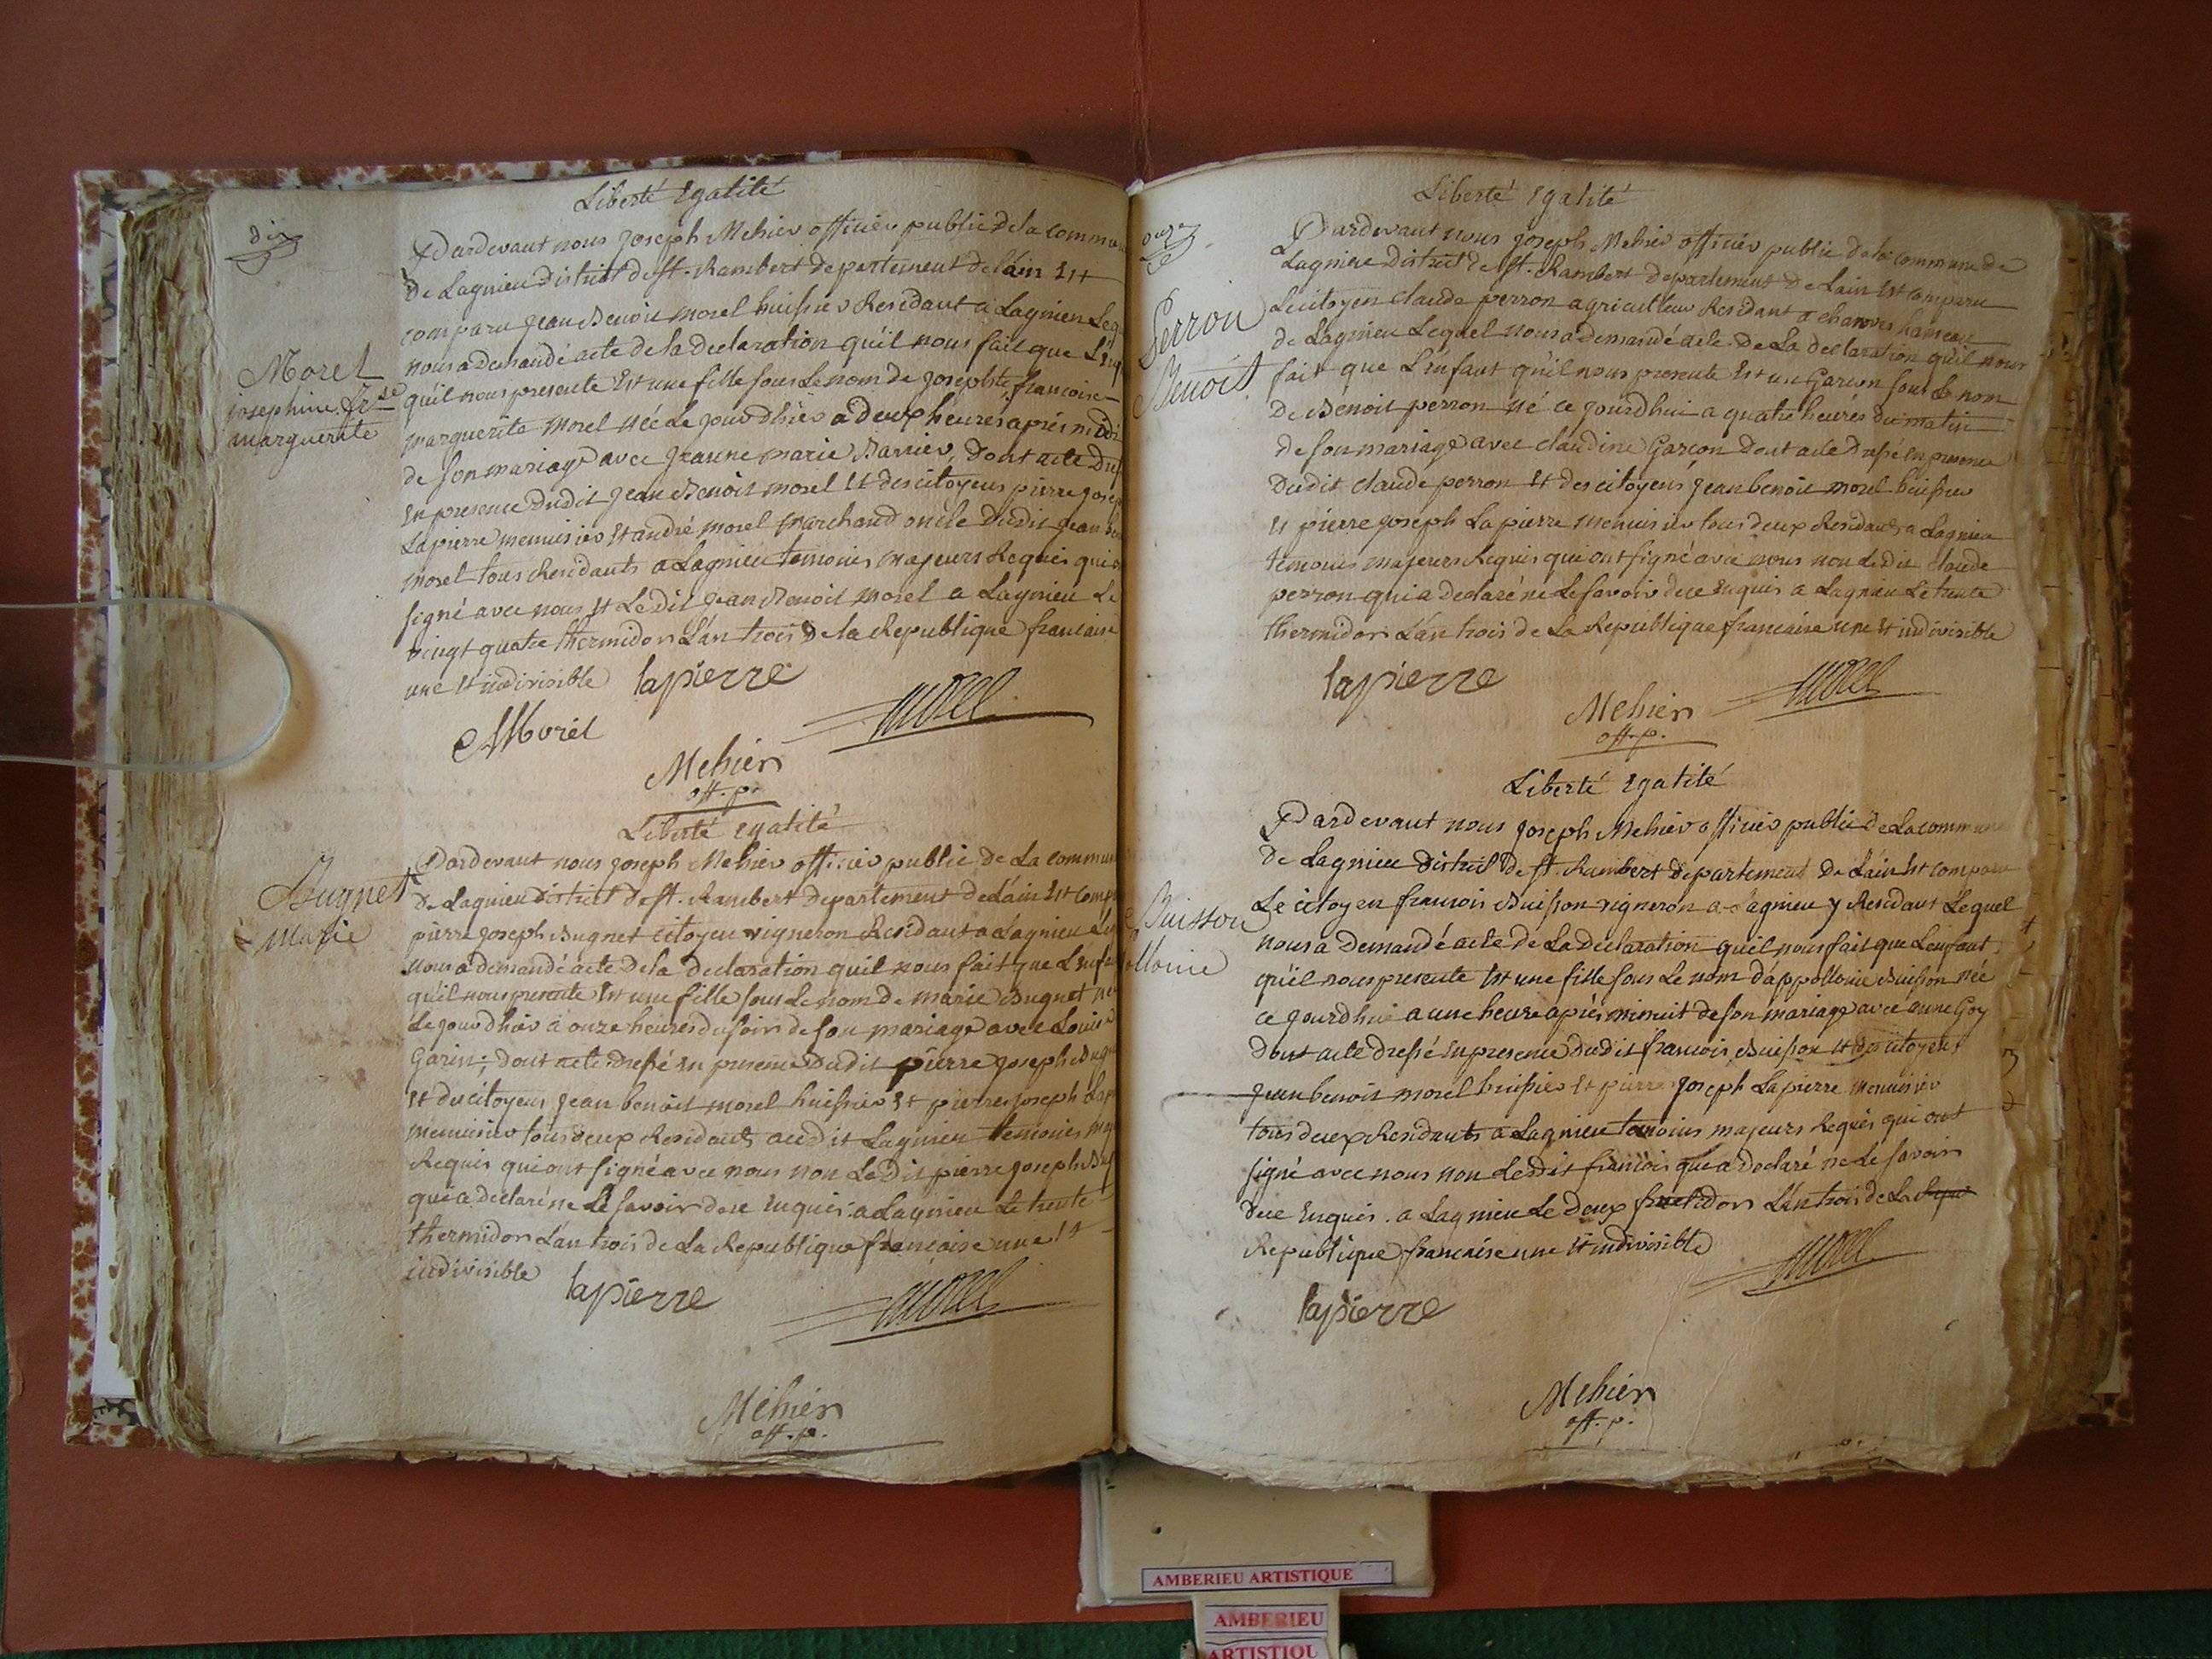 dix
Liberté Egalité
Pardevant nous joseph Mehier officier public de la commu
de Lagnieu district de st. Rambert departement de l'ain Est
comparu jean Benoit morel huissier Residant a Lagnieu Leq
nous a demandé acte de la declaration qu'il nous fait que L'enf
Morel
josephine fr.se
marguerite
qu'il nous presente Est une fille sous Le nom de josephte francoise
marguerite morel née Le jourdhier a deux heures aprés midi
de son mariage avec jeanne marie Barrier, dont acte dres
en presence dudit jean Benoit morel Et des citoyens pierre josep
Lapierre menuisier Et andré morel marchand oncle dudit jean ben
morel tous Residants a Lagnieu temoins majeurs Requis qui o
signé avec nous Et Ledit jean Benoit morel a Lagnieu Le
vingt quatre thermidor L'an trois de la Republique francaise
une Et indivisible
lapierre
morel
AMorel
Mehier
off. p.
Liberté Egalité
Pardevant nous joseph Mehier officier public de La commun
Bugnet
Marie
de Lagnieu district de st. Rambert departement de L'ain Est comp
pierre joseph Bugnet citoyen vigneron Residant a Lagnieu Leq
nous a demandé acte de la declaration quil nous fait que L'enfa
qu'il nous presente Est une fille sous Le nom de marie Bugnet né
Le jourdhier a onze heures du soir de son mariage avec Louise
Garin; dont acte dressé en presence dudit pierre joseph Bugn
Et du citoyens jean benoit morel huissier Et pierre joseph Lap
menuisier tous deux Residants audit Lagnieu temoins maj
Requis qui ont signé avec nous non Ledit pierre joseph Bug
qui a declaré ne Le savoir dece Enquis. a Lagnieu Le trente
thermidor L'an trois de La Republique françaoise une Et
indivisible
lapierre
morel
Mehier
off. p.
onze
Liberté Egalité
Pardevant nous joseph Mehier officier public de la commune de
Lagnieu District de st. Rambert departement de Lain Est comparu
Perron
Benoit
Le citoyen claude perron agriculteur Residant a charvas hameau
de Lagnieu Lequel nous a demandé acte de La declaration qu'il nous
fait que L'enfant qu'il nous presente Est un Garcon sous Le nom
de Benoit perron né ce jourdhui a quatre heures du matin
de son mariage avec claudine Garcon dont acte dressé en presence
dudit claude perron Et des citoyens jean benoit morel huissier
Et pierre joseph Lapierre menuisier tous deux Residants a Lagnieu
temoins majeurs Requis qui ont signé avec nous non Ledit claude
perron qui a declaré ne Le savoir dece Enquis a Lagnieu Le trente
thermidor L'an trois de La Republique francaise une Et indivisible
lapierre
Mehier
off. p.
morel
Liberté Egalité
Pardevant nous joseph Mehier officier public de La commune
de Lagnieu district de st. Rambert departement de L'ain Est comparu
Buisson
llonie
Le citoyen francois Buisson vigneron a Lagnieu y Residant Lequel
nous a demandé acte de La declaration quil nous fait que L'enfant
qu'il nous presente Est une fille sous Le nom d'appollonie Buisson née
ce jourdhui a une heure aprés minuit de son mariage avec anne Goy
dont acte dressé en presence dudit francois Buisson Et des citoyens
jean benoit morel huissier Et pierre joseph Lapierre menuisier
tous deux Residants a Lagnieu temoins majeurs Requis qui ont
signé avec nous non Ledit francois qui a declaré ne Le savoir
dece Enquis. a Lagnieu Le deux fructidor L'an trois de La Repu
Republique francaise une Et indivisible
morel
lapierre
Mehier
off. p.
AMBERIEU ARTISTIQUE
AMBERIEU
ARTISTIQU